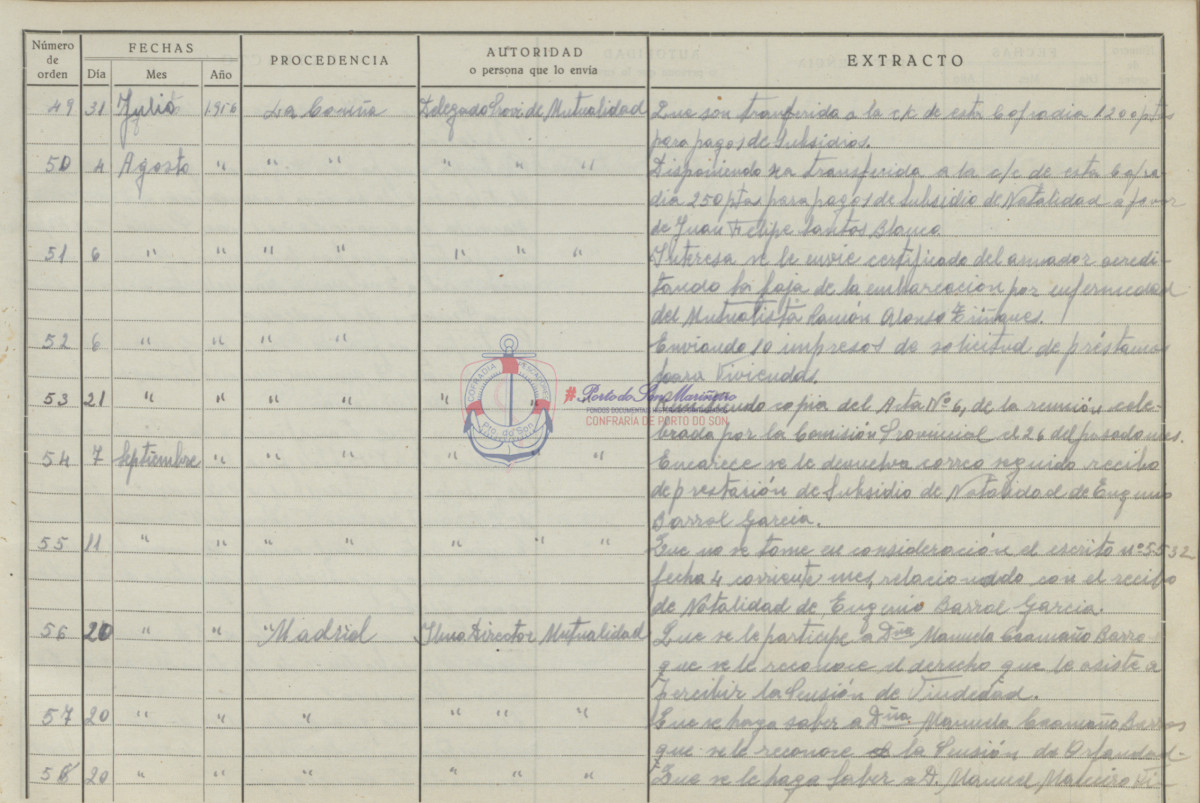 Número de orden FECHAS PROCEDENCIA AUTORIDAD o persona que lo envía EXTRACTO
Día Mes Año
49 31 Julio 1956 La Coruña Delegado Provi de Mutualidad Que son transferida a la c/c de esta Cofradia 1200 pts
para pagos de Subsidios.
50 4 Agosto " " " " " " Disponiendo sea transferida a la c/c de esta Cofra-
dia 250 ptas para pagos de Subsidio de Natalidad a favor
de Juan Felipe Santos Blanco.
51 6 " " " " " " " Interesa se le envie certificado del armador acredi-
tando la baja de la embarcación por enfermedad
del Mutualista Ramón Alonso
52 6 " " " " Enviando 10 impresos de solicitud de préstamos
para Viviendas.
53 21 " " " " " " copia del Acta Nº 6, de la reunión cele-
brada por la Comisión Provincial el 26 del pasado mes.
54 7 Septiembre " " " " " Encarece se le devuelva correo seguido recibo
de prestasión de Subsidio de Natalidad de Eugenio
Barral Garcia.
55 11 " " " " " " " Que no se tome en consideración el escrito nº 5532
fecha 4 corriente mes, relacionado con el recibo
de Natalidad de Eugenio Barral Garcia.
56 20 " " "Madrid Ilmo Director Mutualidad Que se le participe a Dña Manuela Caamaño Barro
que se le reconoce el derecho que le asiste a
percibir la Pensión de Viudedad.
57 20 " " " " " " Que se haga saber a Dña. Manuela Caamaño Barros
que se le reconoce la Pensión de Orfandad-
58 20 " " " " " " Que se le haga saber a D. Manuel
COFRADIA PESCADORES
Pto. do Son
#Porto do Son Mariñeiro
CONFRARÍA DE PORTO DO SON